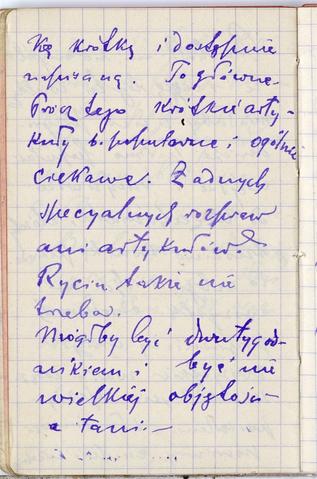 ką krótką i dostępnie
napisaną. To główne.
Prócz tego krótkie arty-
kuły b. popularne i ogólnie
ciekawe. Żadnych
specyalnych rozpraw
ani artykułów.
Rycin także nie
trzeba.
Mógłby być dwutygod-
nikiem i być nie
wielkiej objętości
a tani.—